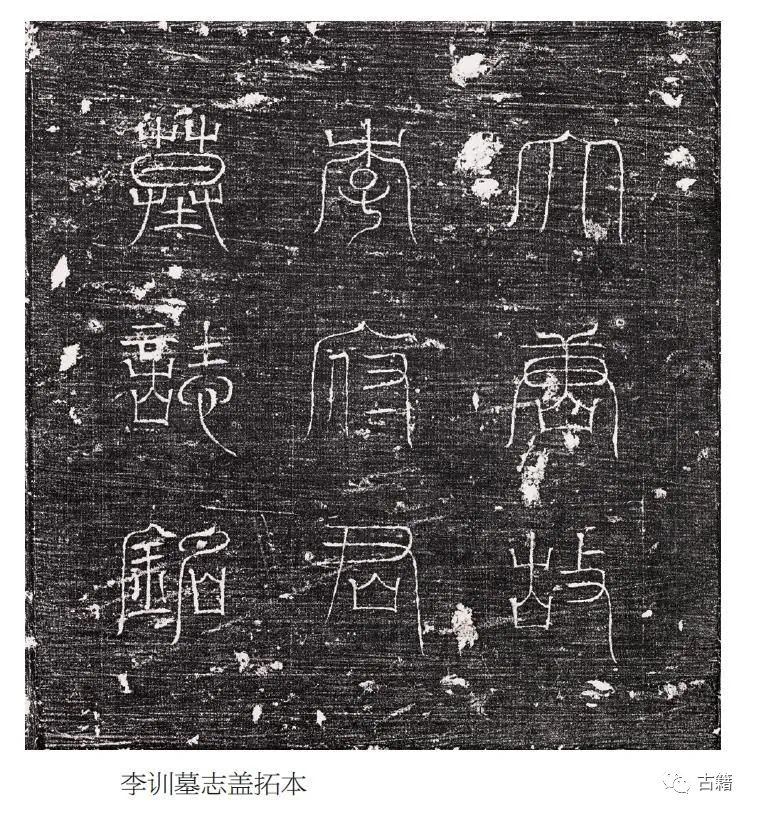 大唐故
李府君
墓誌銘
李训墓志盖拓本
古籍